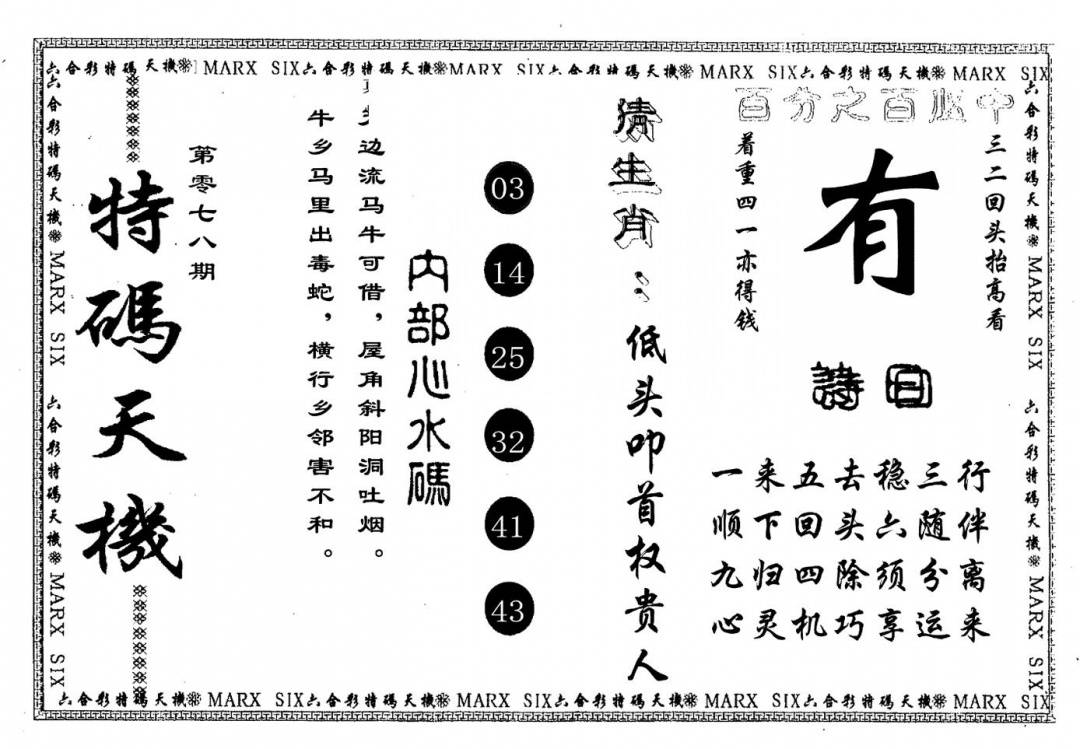 六合彩特碼天機 MARX SIX六合彩特碼天機MARX SIX六合彩特碼天機 MARX SIX六合彩特碼天機 MARX SIX
百分之百必中
三二回头抬高看
有
着重四一亦得钱
詩曰
一来五去稳三行
顺下回头六随伴
九归四除须分离
心灵机巧享运来
猜生肖：低头叩首权贵人
03
14
25
32
41
43
内部心水碼
边流马牛可借，屋角斜阳洞吐烟。
牛乡马里出毒蛇，横行乡邻害不和。
第零七八期
特碼天機
六合彩特碼天機 MARX SIX 六合彩特碼天機 MARX SIX
六合彩特碼天機 MARX SIX 六合彩特碼天機 MARX SIX
六合彩特碼天機 MARX SIX六合彩特碼天機 MARX SIX六合彩特碼天機 MARX SIX六合彩特碼天機 MARX SIX